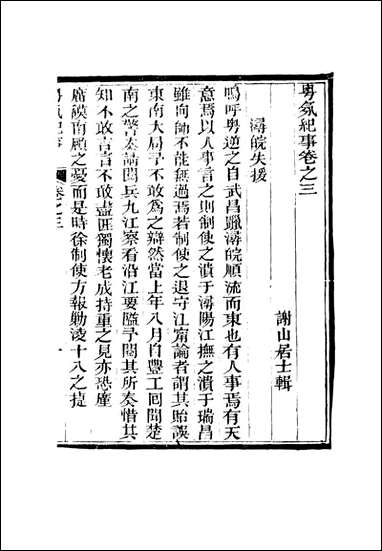 粤氛紀事卷之三
謝山居士輯
潯皖失援
嗚呼粤逆之自武昌躐潯皖順流而東也有人事焉有天
意焉以人事言之則制使之潰于潯陽江撫之潰于瑞昌
雖向帥不能無過焉若制使之退守江甯論者謂其貽誤
東南大局予不敢為之辯然當上年八月自豐工囘聞楚
南之警奏請閱兵九江察看沿江要隘予閱其所奏惜其
知不敢言言不敢盡匪獨懷老成持重之見亦恐廑
廟謨南顧之憂而是時徐制使方報勦淩十八之捷
粤氛紀事
卷之三
一